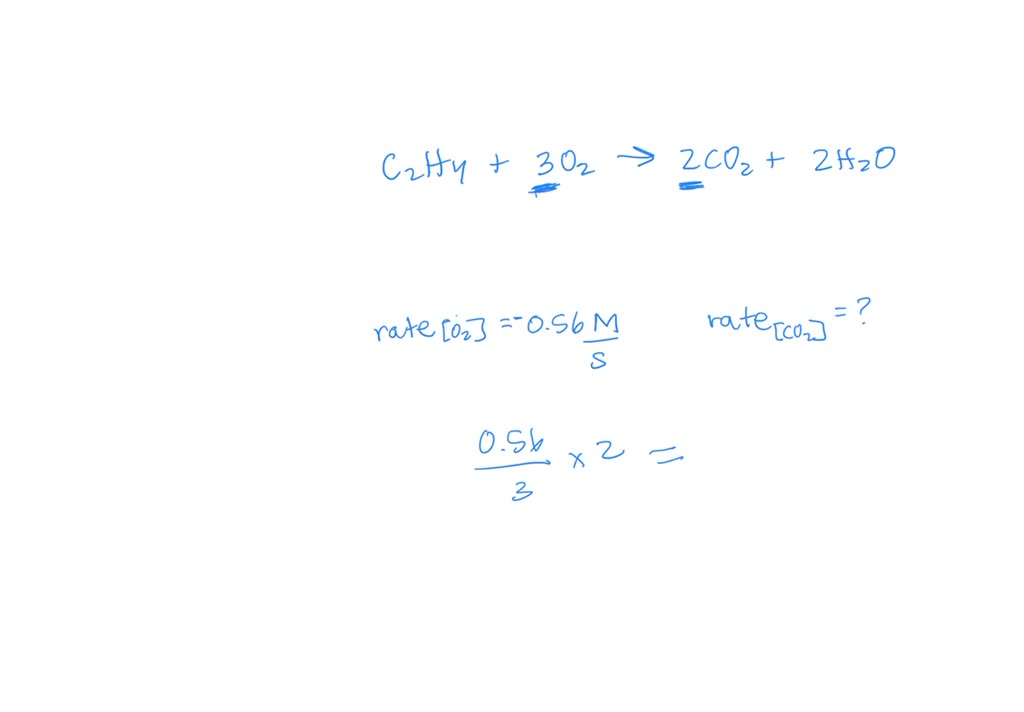 C₂H₄ + 3O₂ → 2CO₂ + 2H₂O
rate[O₂] = -0.56 M/s rate[CO₂] = ?
0.56/3 × 2 =